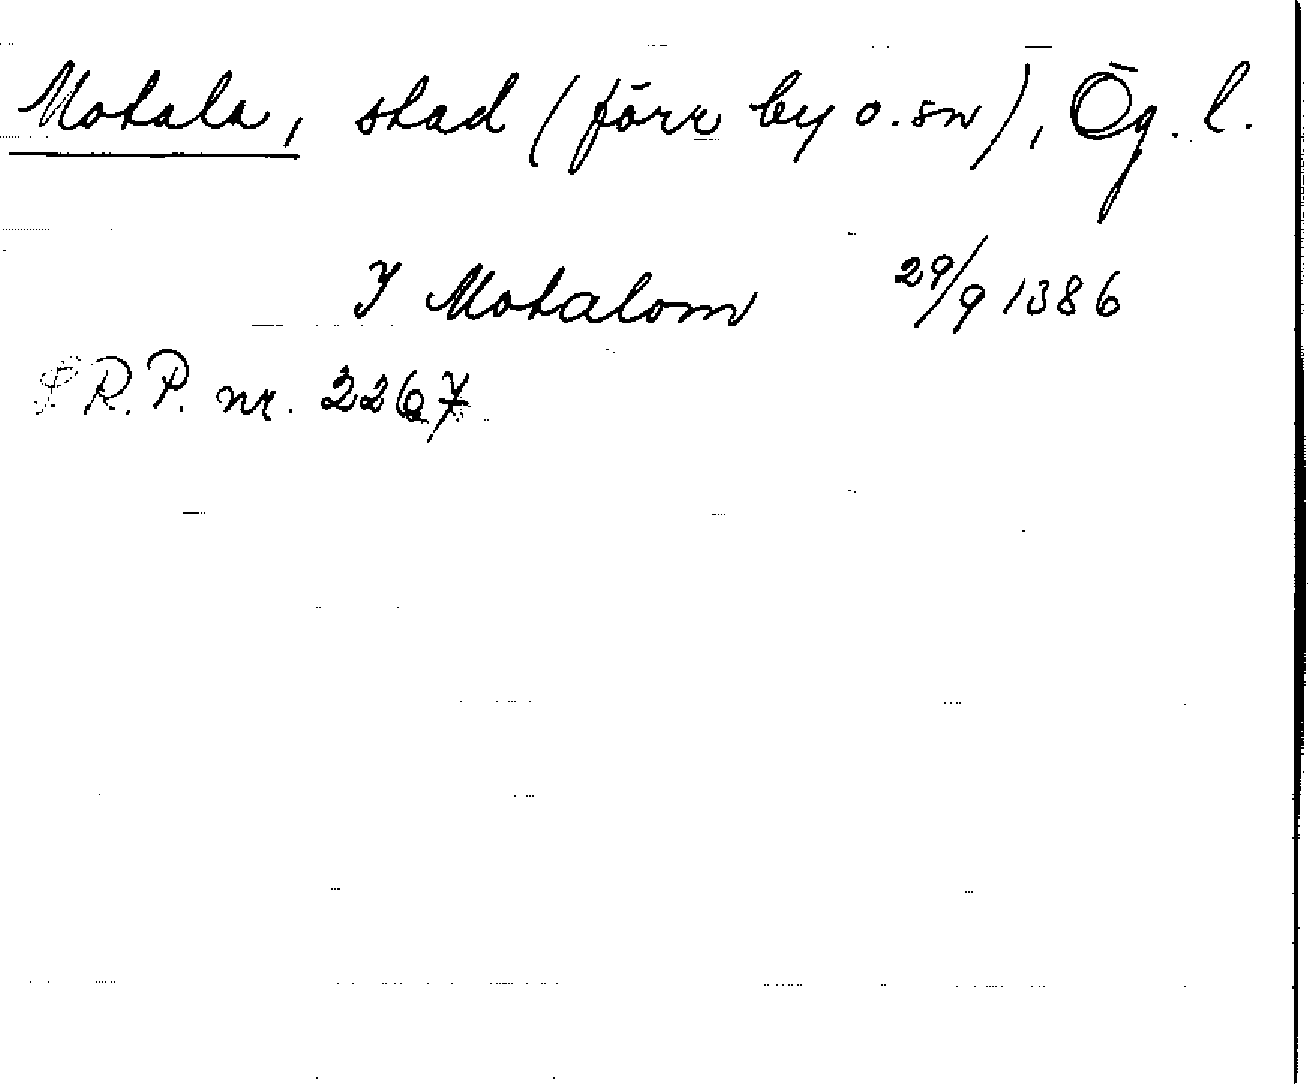 Motala, stad (förr by o. sn), Ög. l.
I Motalom 29/9 1386
S R.P. nr. 2267